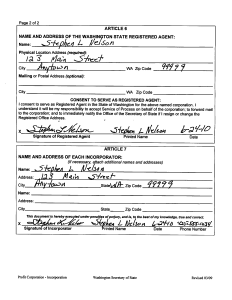 Page 2 of 2
ARTICLE 6
NAME AND ADDRESS OF THE WASHINGTON STATE REGISTERED AGENT:
Name: Stephen L Nelson
Physical Location Address (required):
123 Main Street
City Anytown WA Zip Code 99999
Mailing or Postal Address (optional):
City WA Zip Code
CONSENT TO SERVE AS REGISTERED AGENT:
I consent to serve as Registered Agent in the State of Washington for the above named corporation. I
understand it will be my responsibility to accept Service of Process on behalf of the corporation; to forward mail
to the corporation; and to immediately notify the Office of the Secretary of State if I resign or change the
Registered Office Address.
x Stephen L Nelson Stephen L Nelson 6-24-10
Signature of Registered Agent Printed Name Date
ARTICLE 7
NAME AND ADDRESS OF EACH INCORPORATOR:
(If necessary, attach additional names and addresses)
Name: Stephen L Nelson
Address: 123 Main Street
City Anytown State WA Zip Code 99999
Name:
Address:
City State Zip Code
This document is hereby executed under penalties of perjury, and is, to the best of my knowledge, true and correct.
x Stephen L Nelson 6-24-10
Signature of Incorporator Printed Name Date Phone Number
Profit Corporation - Incorporation Washington Secretary of State Revised 03/09